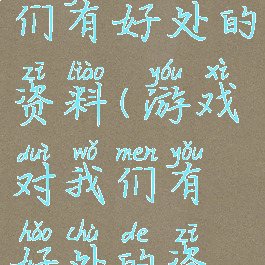 们有好处的
zī liào yóu xì
资料(游戏
duì wǒ men yǒu
对我们有
hǎo chù de zī
好处的资